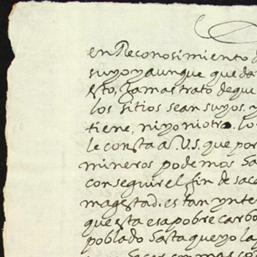 en Reconosimiento d
suyo y aunque queda
esto, jamas trato de que
los sitios sean suyos. y
tiene, ni yo ni otro. lo
le consta a V.S. que por
mineros podemos sa
conseguir el fin de sace
magestad. es tan ynte
que esta esa pobre carbo
poblado hasta que yo la